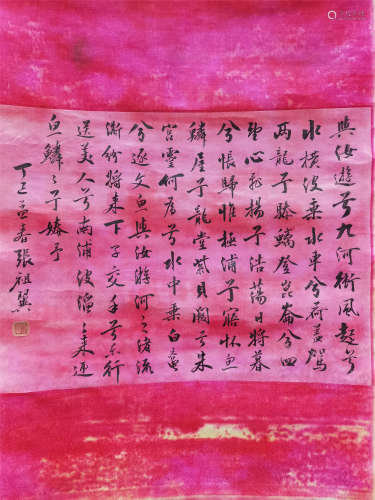 與汝遊兮九河衝風起兮
水橫波乘水車兮荷蓋駕
兩龍兮驂螭登崑崙兮四
望心飛揚兮浩蕩日將暮
兮悵歸惟極浦兮寤懷魚
鱗屋兮龍堂紫貝闕兮朱
宮靈何為兮水中乘白黿
兮逐文魚與汝游河之渚流
澌紛將來下子交手兮東行
送美人兮南浦波滔〻來迎
魚鱗〻兮媵予
丁巳孟春張祖翼